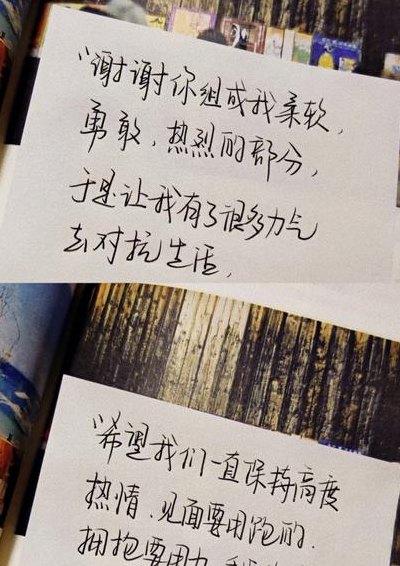 "谢谢你组成我柔软,
勇敢, 热烈的部分,
于是让我有了很多力气
去对抗生活,
"希望我们一直保持高度
热情、见面要用跑的.
拥抱要用力